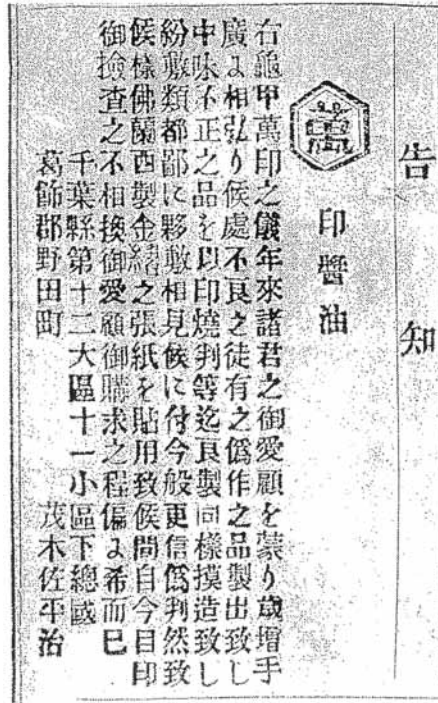 告知
萬
印醬油
右龜甲萬印之儀年來諸君之御愛顧を蒙り歳增手
廣よ相弘り候處不良之徒有之僞作之品製出致し
中味不正之品を以印燒判等迄良製同樣摸造致し
紛敷類都鄙に夥敷相見候に付今般更信僞判然致
候樣佛蘭西製金繡之張紙を貼用致候間自今目印
御撿査之不相換御愛顧御購求之程偏よ希而已
千葉縣第十二大區十一小區下總國
葛飾郡野田町　茂木佐平治